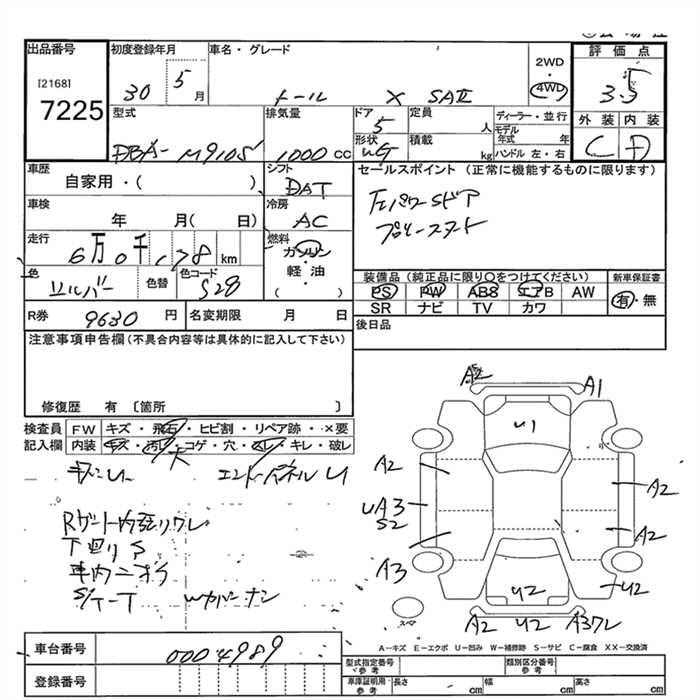 出品番号
[2168]
7225
初度登録年月
30 5 月
車名・グレード
トール X SAⅡ
2WD
・
4WD
評価点
3.5
外装 内装
C D
型式
DBA-M910S
排気量
1000 cc
ドア
5
形状
定員
人
積載
kg
ディーラー・並行
モデル年式 年
ハンドル 左・右
車歴
自家用・( )
シフト
DAT
セールスポイント (正常に機能するものに限ります)
左パワーSドア
プッシュスタート
車検
年 月( 日)
冷房
AC
走行
6万0千,178km
燃料
ガソリン
軽油
( )
色
シルバー
色替
色コード
S28
装備品 (純正品に限り○をつけてください)
PS PW ABS エアB AW
SR ナビ TV カワ
新車保証書
有・無
R券 9630 円
名変期限 月 日
後日品
注意事項申告欄(不具合内容等は具体的に記入して下さい)
修復歴 有 〔箇所 〕
検査員記入欄
FW キズ・飛石・ヒビ割・リペア跡・×要
内装 キズ・汚レ・コゲ・穴・スレ・キレ・破レ
大
エンドパネルU
Rゲート内張りワレ
下廻りS
車内ニオイ
S/T-T Wカバーナシ
A2 A1
U1
A2
A2
UA3
S2
A2
A3
U2
U2
スペア
A2 U2
A-キズ E-エクボ U-凹み W-補修跡 S-サビ C-腐食 XX-交換済
車台番号 0004989
登録番号
型式指定番号
参考
類別区分番号
参考
車庫証明用
参考
長さ cm 幅 cm 高さ cm